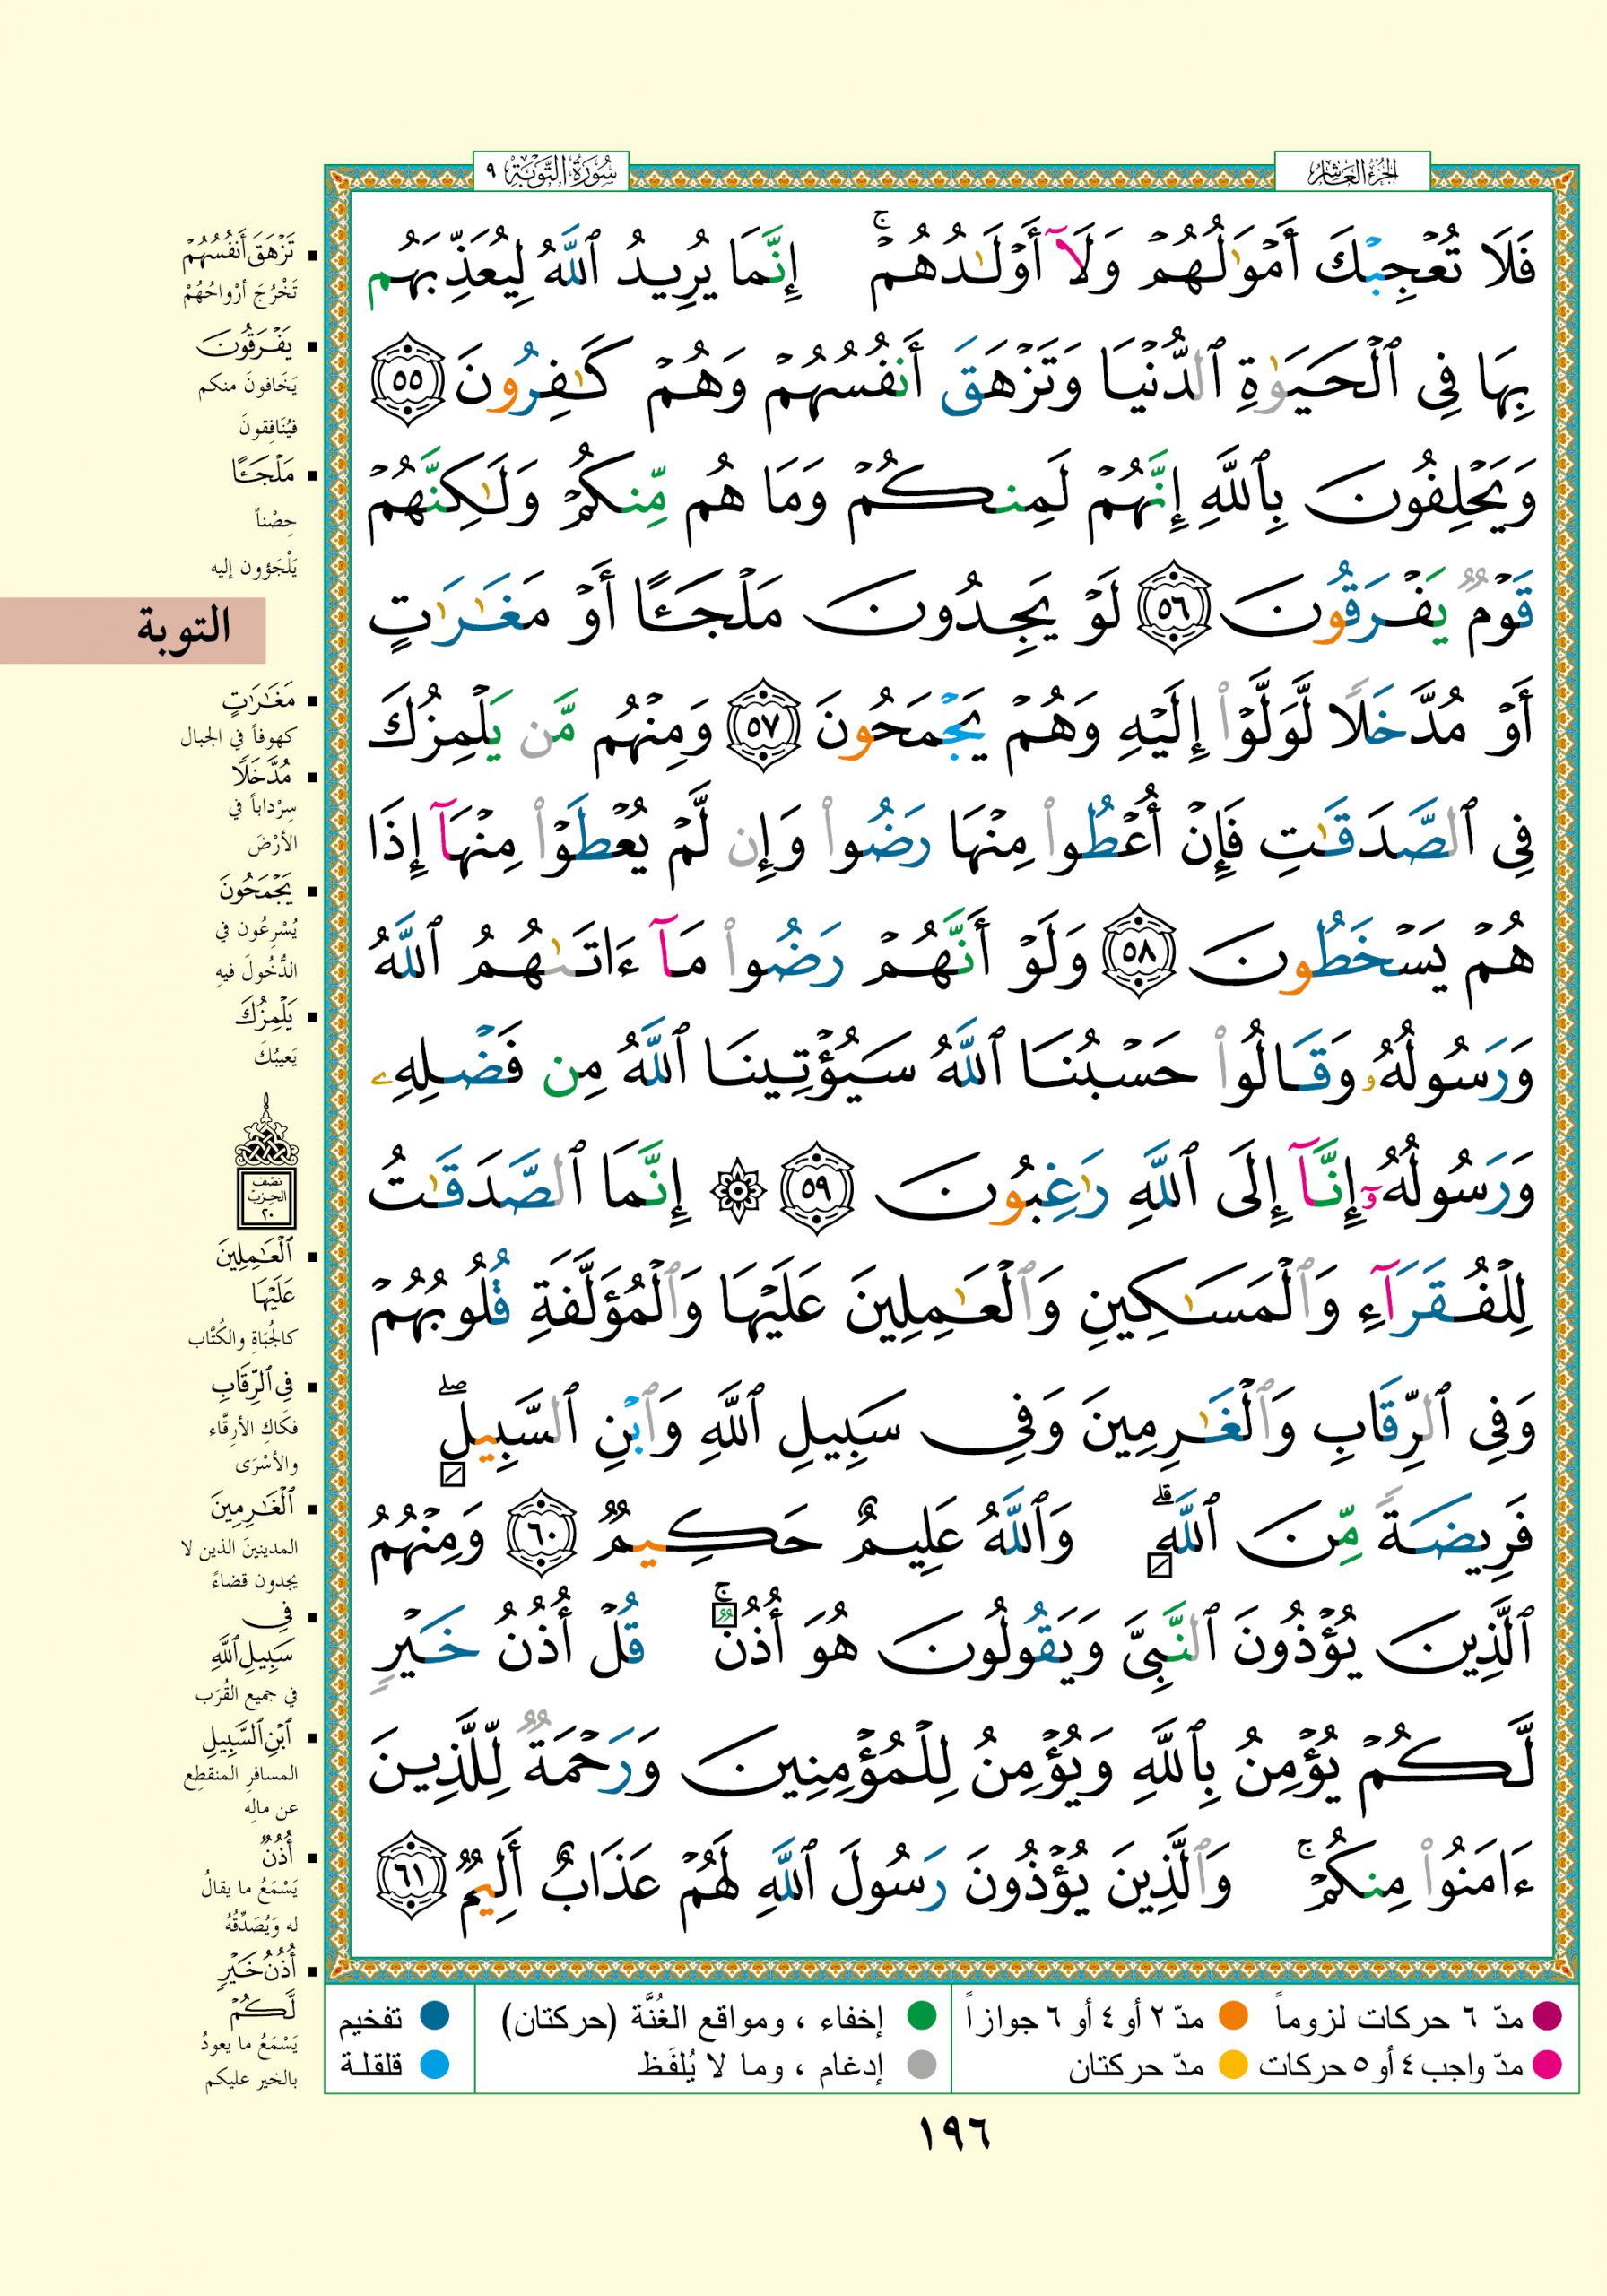 الجزء العاشر
سورة التوبة ٩
فَلَا تُعۡجِبۡكَ أَمۡوَٰلُهُمۡ وَلَآ أَوۡلَٰدُهُمۡۚ إِنَّمَا يُرِيدُ ٱللَّهُ لِيُعَذِّبَهُم
بِهَا فِي ٱلۡحَيَوٰةِ ٱلدُّنۡيَا وَتَزۡهَقَ أَنفُسُهُمۡ وَهُمۡ كَٰفِرُونَ ٥٥
وَيَحۡلِفُونَ بِٱللَّهِ إِنَّهُمۡ لَمِنكُمۡ وَمَا هُم مِّنكُمۡ وَلَٰكِنَّهُمۡ
قَوۡمٞ يَفۡرَقُونَ ٥٦ لَوۡ يَجِدُونَ مَلۡجَـًٔا أَوۡ مَغَٰرَٰتٍ
أَوۡ مُدَّخَلٗا لَّوَلَّوۡاْ إِلَيۡهِ وَهُمۡ يَجۡمَحُونَ ٥٧ وَمِنۡهُم مَّن يَلۡمِزُكَ
فِي ٱلصَّدَقَٰتِ فَإِنۡ أُعۡطُواْ مِنۡهَا رَضُواْ وَإِن لَّمۡ يُعۡطَوۡاْ مِنۡهَآ إِذَا
هُمۡ يَسۡخَطُونَ ٥٨ وَلَوۡ أَنَّهُمۡ رَضُواْ مَآ ءَاتَىٰهُمُ ٱللَّهُ
وَرَسُولُهُۥ وَقَالُواْ حَسۡبُنَا ٱللَّهُ سَيُؤۡتِينَا ٱللَّهُ مِن فَضۡلِهِۦ
وَرَسُولُهُۥٓ إِنَّآ إِلَى ٱللَّهِ رَٰغِبُونَ ٥٩ ۞ إِنَّمَا ٱلصَّدَقَٰتُ
لِلۡفُقَرَآءِ وَٱلۡمَسَٰكِينِ وَٱلۡعَٰمِلِينَ عَلَيۡهَا وَٱلۡمُؤَلَّفَةِ قُلُوبُهُمۡ
وَفِي ٱلرِّقَابِ وَٱلۡغَٰرِمِينَ وَفِي سَبِيلِ ٱللَّهِ وَٱبۡنِ ٱلسَّبِيلِۖ
فَرِيضَةٗ مِّنَ ٱللَّهِۗ وَٱللَّهُ عَلِيمٌ حَكِيمٞ ٦٠ وَمِنۡهُمُ
ٱلَّذِينَ يُؤۡذُونَ ٱلنَّبِيَّ وَيَقُولُونَ هُوَ أُذُنٞۚ قُلۡ أُذُنُ خَيۡرٖ
لَّكُمۡ يُؤۡمِنُ بِٱللَّهِ وَيُؤۡمِنُ لِلۡمُؤۡمِنِينَ وَرَحۡمَةٞ لِّلَّذِينَ
ءَامَنُواْ مِنكُمۡۚ وَٱلَّذِينَ يُؤۡذُونَ رَسُولَ ٱللَّهِ لَهُمۡ عَذَابٌ أَلِيمٞ ٦١
تَزۡهَقَ أَنفُسُهُمۡ
تَخْرُجَ أرْواحُهُمْ
يَفۡرَقُونَ
يَخَافونَ منكم
فيُنَافِقونَ
مَلۡجَـًٔا
حِصْناً
يَلْجَؤون إليه
التوبة
مَغَٰرَٰتٍ
كهوفاً في الجبال
مُدَّخَلٗا
سِرْداباً في
الأرْضَ
يَجۡمَحُونَ
يُسْرِعُون في
الدُّخُولَ فيهِ
يَلۡمِزُكَ
يَعيبُكَ
نصف
الحزب
٢٠
ٱلۡعَٰمِلِينَ
عَلَيۡهَا
كالجُبَاةِ والكُتَّاب
فِي ٱلرِّقَابِ
فكَاكِ الأرِقَّاء
والأسْرَى
ٱلۡغَٰرِمِينَ
المدينينَ الذين لا
يجدون قضاءً
فِي
سَبِيلِ ٱللَّهِ
في جميع القُرَب
ٱبۡنِ ٱلسَّبِيلِ
المسافرِ المنقطِع
عن مالِه
أُذُنٞ
يَسْمَعُ ما يقالُ
له وَيُصَدِّقُهُ
أُذُنُ خَيۡرٖ
لَّكُمۡ
يَسْمَعُ ما يعودُ
بالخير عليكم
مدّ ٦ حركات لزوماً مدّ ٢ أو ٤ أو ٦ جوازاً إخفاء ، ومواقع الغُنَّة (حركتان) تفخيم
مدّ واجب ٤ أو ٥ حركات مدّ حركتان إدغام ، وما لا يُلفَظ قلقلة
١٩٦